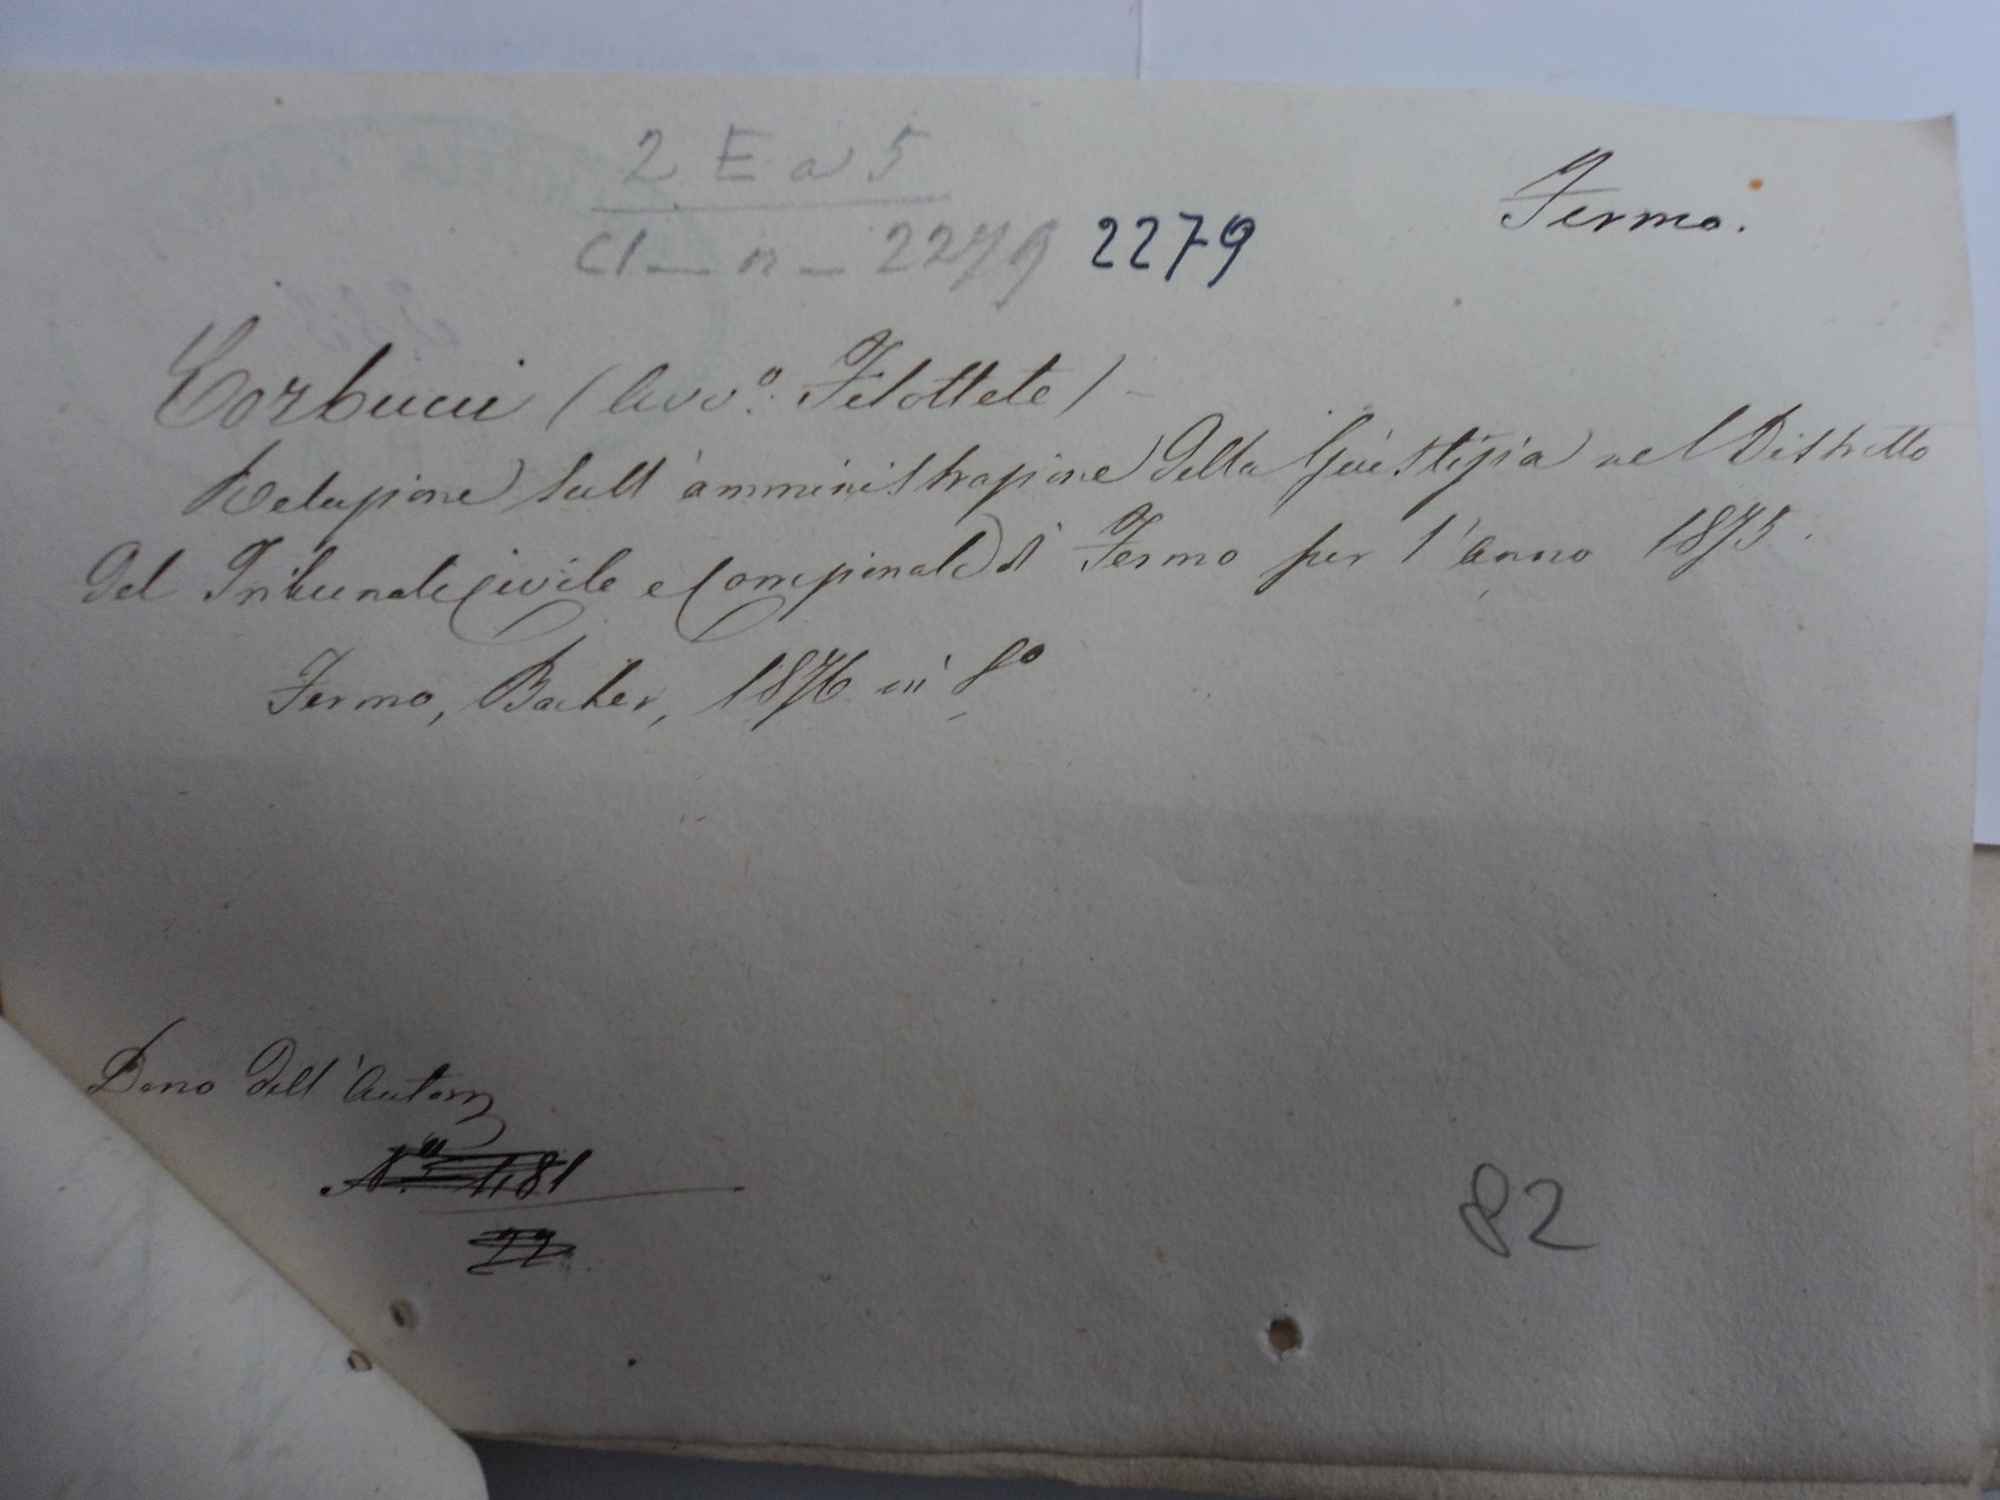 2 E a 5
Fermo.
Cl — n — 2279 2279
Corbucci (Avvo. Filottete) –
Relazione sull'amministrazione della Giustizia nel Distretto
del Tribunale Civile e Correzionale di Fermo per l'anno 1875.
Fermo, Bacher, 1876 in 8o
Dono dell'Autore
No 1181
22
82